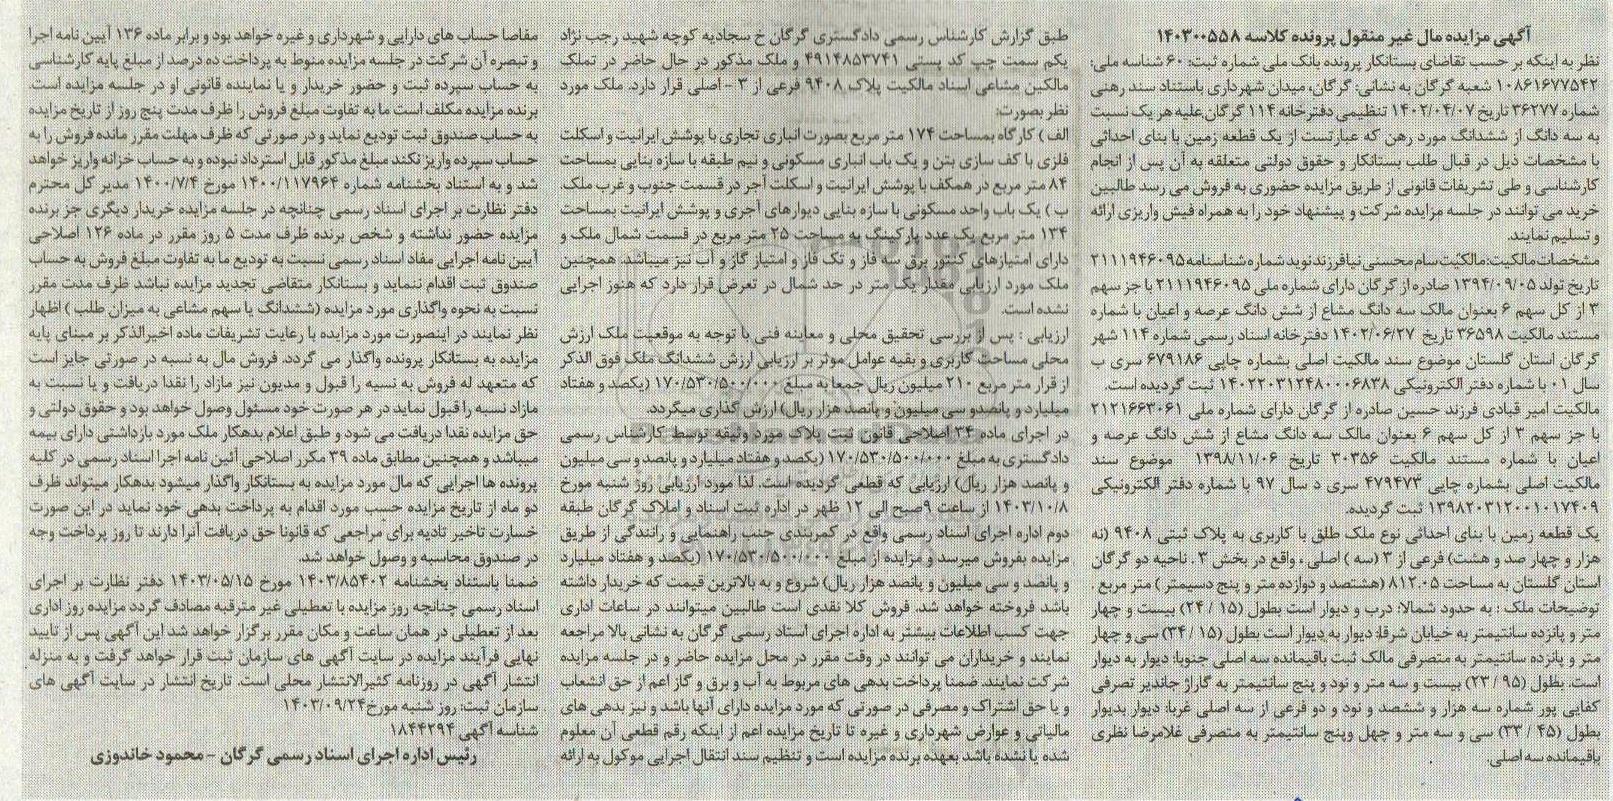 آگهی مزایده مال غیر منقول پرونده کلاسه ۱۴۰۳۰۰۵۵۸
نظر به اینکه بر حسب تقاضای بستانکار پرونده بانک ملی شماره ثبت: ۶۰ شناسه ملی:
۱۰۸۶۱۶۷۷۵۴۲ شعبه گرگان به نشانی: گرگان، میدان شهرداری باستناد سند رهنی
شماره ۳۶۲۷۷ تاریخ ۱۴۰۲/۰۴/۰۷ تنظیمی دفترخانه ۱۱۴ گرگان,علیه هر یک نسبت
به سه دانگ از ششدانگ مورد رهن که عبارتست از یک قطعه زمین با بنای احداثی
با مشخصات ذیل در قبال طلب بستانکار و حقوق دولتی متعلقه به آن پس از انجام
کارشناسی و طی تشریفات قانونی از طریق مزایده حضوری به فروش می رسد طالبین
خرید می توانند در جلسه مزایده شرکت و پیشنهاد خود را به همراه فیش واریزی ارائه
و تسلیم نمایند.
مشخصات مالکیت: مالکیت سام محسنی نیا فرزند نوید شماره شناسنامه ۲۱۱۱۹۴۶۰۹۵
تاریخ تولد ۱۳۹۴/۰۹/۰۵ صادره از گرگان دارای شماره ملی ۲۱۱۱۹۴۶۰۹۵ با جز سهم
۳ از کل سهم ۶ بعنوان مالک سه دانگ مشاع از شش دانگ عرصه و اعیان با شماره
مستند مالکیت ۳۶۵۹۸ تاریخ ۱۴۰۲/۰۶/۲۷ دفترخانه اسناد رسمی شماره ۱۱۴ شهر
گرگان استان گلستان موضوع سند مالکیت اصلی بشماره چاپی ۶۷۹۱۸۶ سری ب
سال ۰۱ با شماره دفتر الکترونیکی ۱۴۰۲۲۰۳۱۲۴۸۰۰۰۶۸۳۸ ثبت گردیده است.
مالکیت امیر قبادی فرزند حسین صادره از گرگان دارای شماره ملی ۲۱۲۱۶۶۳۰۶۱
با جز سهم ۳ از کل سهم ۶ بعنوان مالک سه دانگ مشاع از شش دانگ عرصه و
اعیان با شماره مستند مالکیت ۳۰۳۵۶ تاریخ ۱۳۹۸/۱۱/۰۶ موضوع سند
مالکیت اصلی بشماره چاپی ۴۷۹۴۷۳ سری د سال ۹۷ با شماره دفتر الکترونیکی
۱۳۹۸۲۰۳۱۲۰۰۱۰۱۷۴۰۹ ثبت گردیده.
یک قطعه زمین با بنای احداثی نوع ملک طلق با کاربری به پلاک ثبتی ۹۴۰۸ (نه
هزار و چهار صد و هشت) فرعی از ۳ (سه ) اصلی ، واقع در بخش ۳ . ناحیه دو گرگان
استان گلستان به مساحت ۸۱۲.۰۵ (هشتصد و دوازده متر و پنج دسیمتر ) متر مربع .
توضیحات ملک : به حدود شمالا: درب و دیوار است بطول (۱۵ / ۲۴) بیست و چهار
متر و پانزده سانتیمتر به خیابان شرقا: دیوار به دیوار است بطول (۱۵ / ۳۴) سی و چهار
متر و پانزده سانتیمتر به متصرفی مالک ثبت باقیمانده سه اصلی جنوبا: دیوار به دیوار
است. بطول (۹۵ / ۲۳) بیست و سه متر و نود و پنج سانتیمتر به گاراژ جاندبر تصرفی
کفایی پور شماره سه هزار و ششصد و نود و دو فرعی از سه اصلی غربا: دیوار بدیوار
بطول (۴۵ / ۳۳) سی و سه متر و چهل وپنج سانتیمتر به متصرفی غلامرضا نظری
باقیمانده سه اصلی.
طبق گزارش کارشناس رسمی دادگستری گرگان خ سجادیه کوچه شهید رجب نژاد
یکم سمت چپ کد پستی ۴۹۱۴۸۵۳۷۴۱ و ملک مذکور در حال حاضر در تملک
مالکین مشاعی اسناد مالکیت پلاک ۹۴۰۸ فرعی از ۳ -اصلی قرار دارد. ملک مورد
نظر بصورت:
الف ) کارگاه بمساحت ۱۷۴ متر مربع بصورت انباری تجاری با پوشش ایرانیت و اسکلت
فلزی با کف سازی بتن و یک باب انباری مسکونی و نیم طبقه با سازه بنایی بمساحت
۸۴ متر مربع در همکف با پوشش ایرانیت و اسکلت آجر در قسمت جنوب و غرب ملک.
ب ) یک باب واحد مسکونی با سازه بنایی دیوارهای آجری و پوشش ایرانیت بمساحت
۱۳۴ متر مربع یک عدد پارکینگ به مساحت ۲۵ متر مربع در قسمت شمال ملک و
دارای امتیازهای کنتور برق سه فاز و تک فاز و امتیاز گاز و آب نیز میباشد. همچنین
ملک مورد ارزیابی مقدار یک متر در حد شمال در تعرض قرار دارد که هنوز اجرایی
نشده است.
ارزیابی : پس از بررسی تحقیق محلی و معاینه فنی با توجه به موقعیت ملک ارزش
محلی مساحت کاربری و بقیه عوامل موثر بر ارزیابی ارزش ششدانگ ملک فوق الذکر
از قرار متر مربع ۲۱۰ میلیون ریال جمعا به مبلغ ۱۷۰/۵۳۰/۵۰۰/۰۰۰ (یکصد و هفتاد
میلیارد و پانصدو سی میلیون و پانصد هزار ریال) ارزش گذاری میگردد.
در اجرای ماده ۳۴ اصلاحی قانون ثبت پلاک مورد وثیقه توسط کارشناس رسمی
دادگستری به مبلغ ۱۷۰/۵۳۰/۵۰۰/۰۰۰ (یکصد و هفتاد میلیارد و پانصد و سی میلیون
و پانصد هزار ریال) ارزیابی که قطعی گردیده است. لذا مورد ارزیابی روز شنبه مورخ
۱۴۰۳/۱۰/۸ از ساعت ۹صبح الی ۱۲ ظهر در اداره ثبت اسناد و املاک گرگان طبقه
دوم اداره اجرای اسناد رسمی واقع در کمربندی جنب راهنمایی و رانندگی از طریق
مزایده بفروش میرسد و مزایده از مبلغ ۱۷۰/۵۳۰/۵۰۰/۰۰۰ (یکصد و هفتاد میلیارد
و پانصد و سی میلیون و پانصد هزار ریال) شروع و به بالاترین قیمت که خریدار داشته
باشد فروخته خواهد شد. فروش کلا نقدی است طالبین میتوانند در ساعات اداری
جهت کسب اطلاعات بیشتر به اداره اجرای اسناد رسمی گرگان به نشانی بالا مراجعه
نمایند و خریداران می توانند در وقت مقرر در محل مزایده حاضر و در جلسه مزایده
شرکت نمایند. ضمنا پرداخت بدهی های مربوط به آب و برق و گاز اعم از حق انشعاب
و یا حق اشتراک و مصرفی در صورتی که مورد مزایده دارای آنها باشد و نیز بدهی های
مالیاتی و عوارض شهرداری و غیره تا تاریخ مزایده اعم از اینکه رقم قطعی آن معلوم
شده یا نشده باشد بعهده برنده مزایده است و تنظیم سند انتقال اجرایی موکول به ارائه
مفاصا حساب های دارایی و شهرداری و غیره خواهد بود و برابر ماده ۱۳۶ آیین نامه اجرا
و تبصره آن شرکت در جلسه مزایده منوط به پرداخت ده درصد از مبلغ پایه کارشناسی
به حساب سپرده ثبت و حضور خریدار و یا نماینده قانونی او در جلسه مزایده است.
برنده مزایده مکلف است ما به تفاوت مبلغ فروش را ظرف مدت پنج روز از تاریخ مزایده
به حساب صندوق ثبت تودیع نماید و در صورتی که ظرف مهلت مقرر مانده فروش را به
حساب سپرده واریز نکند مبلغ مذکور قابل استرداد نبوده و به حساب خزانه واریز خواهد
شد و به استناد بخشنامه شماره ۱۴۰۰/۱۱۷۹۶۴ مورخ ۱۴۰۰/۷/۴ مدیر کل محترم
دفتر نظارت بر اجرای اسناد رسمی چنانچه در جلسه مزایده خریدار دیگری جز برنده
مزایده حضور نداشته و شخص برنده ظرف مدت ۵ روز مقرر در ماده ۱۲۶ اصلاحی
آیین نامه اجرایی مفاد اسناد رسمی نسبت به تودیع ما به تفاوت مبلغ فروش به حساب
صندوق ثبت اقدام ننماید و بستانکار متقاضی تجدید مزایده نباشد ظرف مدت مقرر
نسبت به نحوه واگذاری مورد مزایده (ششدانگ یا سهم مشاعی به میزان طلب ) اظهار
نظر نمایند در اینصورت مورد مزایده با رعایت تشریفات ماده اخیرالذکر بر مبنای پایه
مزایده به بستانکار پرونده واگذار می گردد. فروش مال به نسیه در صورتی جایز است
که متعهد له فروش به نسیه را قبول و مدیون نیز مازاد را نقدا دریافت و یا نسبت به
مازاد نسیه را قبول نماید در هر صورت خود مسئول وصول خواهد بود و حقوق دولتی و
حق مزایده نقدا دریافت می شود و طبق اعلام بدهکار ملک مورد بازداشتی دارای بیمه
میباشد و همچنین مطابق ماده ۳۹ مکرر اصلاحی آئین نامه اجرا اسناد رسمی در کلیه
پرونده ها اجرایی که مال مورد مزایده به بستانکار واگذار میشود بدهکار میتواند ظرف
دو ماه از تاریخ مزایده حسب مورد اقدام به پرداخت بدهی خود نماید در این صورت
خسارت تاخیر تادیه برای مراجعی که قانونا حق دریافت آنرا دارند تا روز پرداخت وجه
در صندوق محاسبه و وصول خواهد شد.
ضمنا باستناد بخشنامه ۱۴۰۳/۸۵۴۰۲ مورخ ۱۴۰۳/۰۵/۱۵ دفتر نظارت بر اجرای
اسناد رسمی چنانچه روز مزایده با تعطیلی غیر مترقبه مصادف گردد مزایده روز اداری
بعد از تعطیلی در همان ساعت و مکان مقرر برگزار خواهد شد این آگهی پس از تایید
نهایی فرآیند مزایده در سایت آگهی های سازمان ثبت قرار خواهد گرفت و به منزله
انتشار آگهی در روزنامه کثیرالانتشار محلی است. تاریخ انتشار در سایت آگهی های
سازمان ثبت: روز شنبه مورخ۱۴۰۳/۰۹/۲۴
شناسه آگهی ۱۸۴۴۲۹۴
رئیس اداره اجرای اسناد رسمی گرگان - محمود خاندوزی